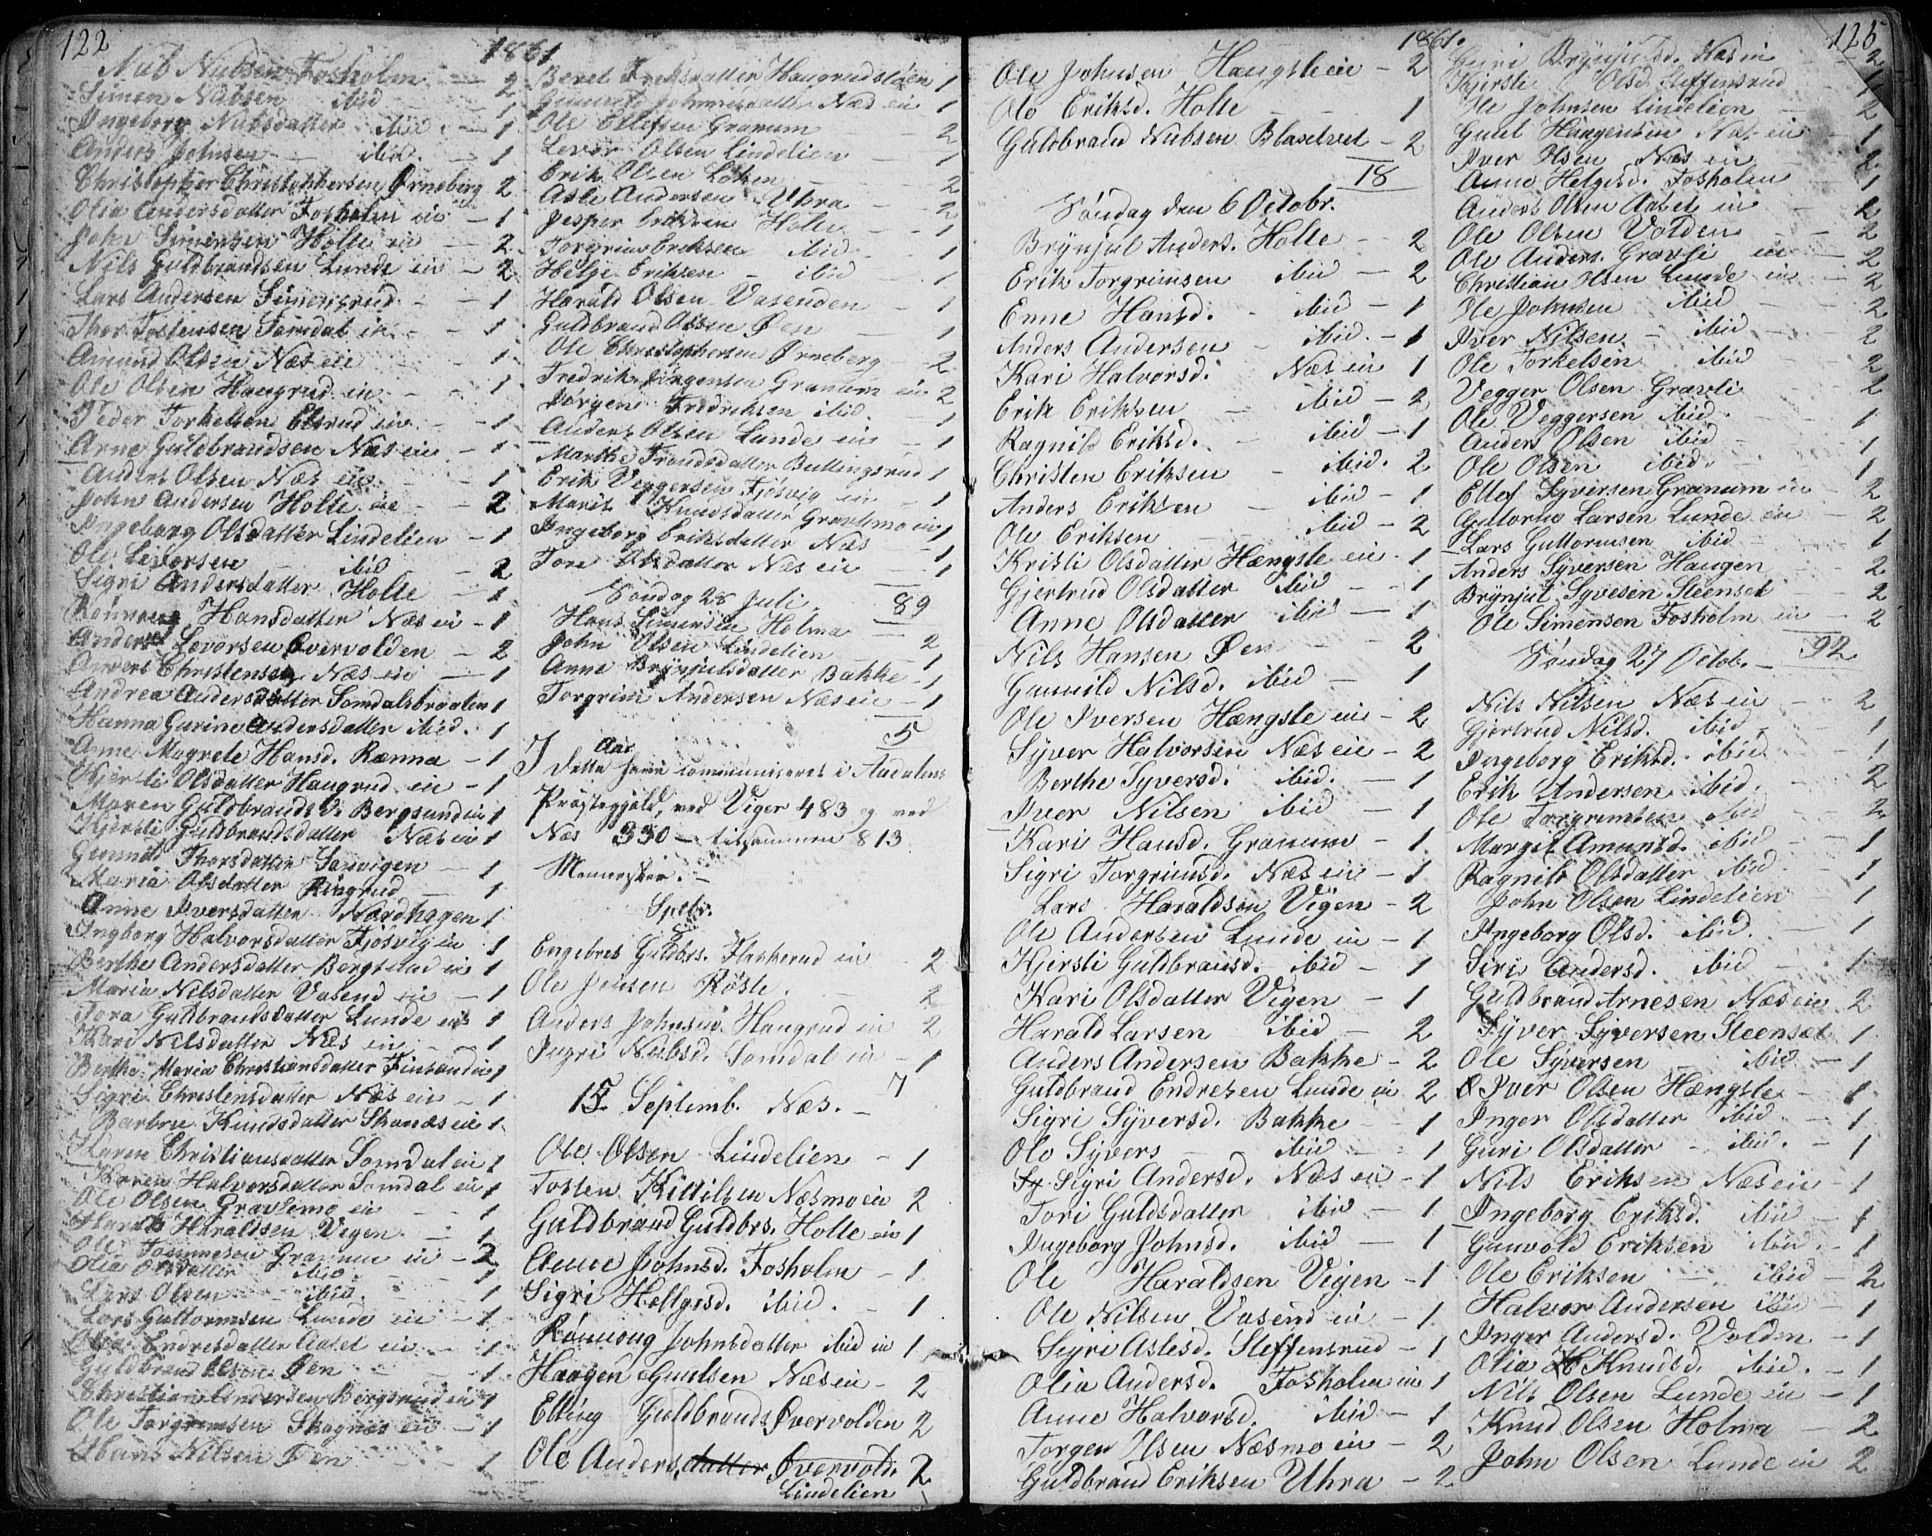 122
1861
Nub Nubsen Fosholm - 2
Simen Nubsen ibid - 1
Ingeborg Nubsdatter ibid. - 1
Anders Johnsen ibid. - 1
Christopher Christophersen Ørneberg 2
Olia Andersdatter Fosholm ein - 1
John Simensen Holte ein - 2
Nils Guldbrandsen Lunde ein - 2
Lars Andersen Simensrud - 1
Thor Tostensen Somdal ein - 1
Amund Olsen Næs eie - 1
Ole Olsen Haugrud ein - 1
Peder Torkelsen Elsrud ein - 1
Arne Guldbrandsen Næs eie - 1
Anders Olsen Næs ein - 1
John Andersen Holte eie - 2
Ingeborg Olsdatter Lindelien - 1
Ole Levorsen ibid - 2
Sigri Andersdatter Holte - 1
Rønnoug Hansdatter Næs ei - 1
Anders Levorsen Øvervolden - 2
Anders Christensen Næs ein - 1
Andrea Andersdatter Somdalsbraaten 1
Hanna Gurine Andersdatter ibid. 1
Anne Magrete Hansd. Rænna - 1
Kjersti Olsdatter Haugrud ein - 1
Maren Guldbrandsd. Bergsund ein 1
Kjersti Guldbrandsdatter Næs ein 1
Gunnild Thorsdatter Sævigen - 1
Maria Olsdatter Ringerud - 1
Anne Iversdatter Nordhagen 1
Ingborg Halvorsdatter Fjøsvig ein 1
Berthe Andersdatter Bergsrud ein 1
Maria Nilsdatter Vasend ein - 1
Tora Guldbrandsdatter Lunde ein 1
Kari Nilsdatter Næs ein - 1
Berthe Maria Christiansdatter Finsand ein 1
Sigri Christensdatter Næs ein - 1
Barbro Knudsdatter Skanæs eie 1
Karen Christiansdatter Somdal ein 1
Karen Halvorsdatter Somdal ein 1
Ole Olsen Gravlimo ein - 1
Harald Haraldsen Vegen - 1
Ole Tommesen Granum ein - 2
Olia Olsdatter ibid. - 1
Lars Olsen - ibid. 1
Lars Guttormsen Lunde ein - 1
Olia Endresdatter Aaset ein - 1
Guldbrand Olsen Øen - 1
Christian Andersen Bergsrud ein 1
Ole Torgrimsen Skagnæs ein - 1
Hans Nilsen Øen 1
Beret Eriksdatter Haugrudsløen 1
Gunnild Johannesdatter Næs ein 1
Ole Ellefsen Granum 2
Levor Olsen Lindelien - 1
Erik Olsen Løken - 2
Asle Andersen Uhra - 2
Jesper Eriksen Holte - 1
Torgrim Eriksen ibid - 1
Helge Eriksen - ibid 1
Harald Olsen Vasenden - 1
Guldbrand Olsen Øen - 1
Ole Christophersen Ørneberg 2
Fredrik Jørgensen Granum ein 2
Jørgen Fredriksen ibid. 1
Anders Olsen Lunde ein - 1
Marthe Frandsdatter Bullingsrud 1
Erik Veggersen Fjøsvig ein - 1
Marit Knudsdatter Gravlimo ein 1
Ingeborg Eriksdatter Næs - 1
Tore Olsdatter Næs ein - 1
89
Søndag 28 Juli.
Hans Simensen Holma 2
John Olsen Lindelien - 1
Anne Brynjulsdatter Bakke - 1
Torgrim Andersen Næs ein - 1
5
I dette Aar communiseret i Aadalens
Præstegjæld, ved Viger 483 og ved
Næs 330 - tilsammen 813
Mennesker. -
Engebret Guldbr. Flaskerud ein 2
Ole Jensen Røste. - 2
Anders Johnsen Haugrud ein 2
Ingri Nubsd. Somdal ein - 1
7
15 Septemb. Næs. -
Ole Olsen Lindelien - 1
Tosten Kittilsen Næsmoein 2
Guldbrand Guldbrs. Holte ein 1
Anne Johnsd. Fosholm - 1
Sigri Hellgesd. ibid. - 1
Rønnoug Johnsdatter ibid ein 1
Haagen Gudsen Næs ein - 2
Elling Guldbrands Øvervolden 2
Ole Anders.datter Øvervold. 2
Lindelien
1861.
125
Ole Johnsen Hængsle ein - 2
Ole Eriksd. Holte - 1
Guldbrand Nubsen Blaselvet - 2
18
Søndag den 6 Octobr.
Brynjul Anders. Holte - 2
Erik Torgrimsen ibid - 2
Enne Hansd. - ibid - 1
Anders Andersen - ibid. - 1
Kari Halvorsd. Næs ein 1
Erik Eriksen - ibid - 2
Ragnild Eriksd. - ibid - 1
Christen Eriksen - ibid. 2
Anders Eriksen - ibid - 1
Ole Eriksen - ibid - 2
Kristi Olsdatter Hængsle ein - 1
Gjertrud Olsdatter ibid - 1
Anne Olsdatter ibid - 1
Nils Hansen Øen - 2
Gunnild Nilsd. ibid - 1
Ole Iversen Hængsle ein - 2
Syver Halvorsen Næs eie - 2
Berthe Syversd. ibid. - 1
Iver Nilsen ibid - 1
Kari Hansd. Granum - 1
Sigri Torgrimsd. Næs ein - 1
Lars Haraldsen Vigen - 2
Ole Andersen Lunde in - 1
Kjersti Guldbrandsd. ibid - 1
Kari Olsdatter Vigen - 1
Harald Larsen ibid - 2
Anders Andersen Bakke - 2
Guldbrand Endresen Lunde in 2
Sigri Syversd. Bakke - 1
Ole Syvers - ibid - 1
Sy Sigri Andersd. Næs ein - 1
Tori Guldsdatter ibid - 1
Ingeborg Johnsd. ibid - 1
Ole Haraldsen Veigen - 1
Ole Nilsen Vasend ein - 1
Sigri Aslesd. Steffensrud - 1
Olia Andersd. Fosholm ein 1
Anne Halvorsd. ibid - 1
Torger Olsen Næsmo ein - 2
Guldbrand Eriksen Uhra - 2
Guri Brynjulsd. Næs in - 2
Kjersti Olsd Steffensrud - 1
Ole Johnsen Lindelien - 2
Gudl Haagensen Næs ein - 1
Iver Olsen Næs ein - 2
Anne Helgesd. Fosholm 1
Anders Olsen Aaset ein - 2
Ole Olsen Volden - 2
Ole Anders. Gravli ein - 2
Christian Olsen Lunde in - 2
Ole Johnsen ibid - 2
Iver Nilsen - ibid - 2
Ole Torkelsen ibid 2
Vegger Olsen Gravli 2
Ole Veggersen ibid. 1
Anders Olsen ibid - 1
Ole Olsen ibid. - 1
Ellef Syversen Granum ein - 2
Guttorm Larsen Lunde ein - 2
Lars Guttormsen ibid - 1
Anders Syversen Haugen - 2
Brynjul Syvesen Steenset - 2
Ole Simensen Fosholm ein - 2
92
Søndag 27 Octob. -
Nils Nilsen Næs ein - 2
Gjertrud Nilsd. ibid, - 1
Ingeborg Eriksd. ibid. 1
Erik Andersen ibid. - 2
Ole Torgrimsen ibid - 2
Margit Amundsd. ibid - 1
Ragnild Olsdatter ibid. - 1
John Olsen Lindelien - 1
Ingeborg Olsd. ibid. - 1
Siri Andersd. ibid - 1
Guldbrand Arnesen Næs ein 2
Syver Syversen Steenset 1
Ole Syversen ibid - 1
Iver Olsen Hængsle - 1
Inger Olsdatter ibid. - 1
Guri Olsdatter - ibid. - 1
Nils Eriksen Næs ein - 1
Ingeborg Eriksd. ibid - 1
Gunvold Eriksen ibid. - 1
Ole Eriksen - ibid - 2
Halvor Andersen ibid 1
Inger Andersd. Volden - 1
Olia K Knudsd. ibid. - 1
Nils Olsen Lunde ein - 1
Knud Olsen Holma - 2
John Olsen Lunde in 2